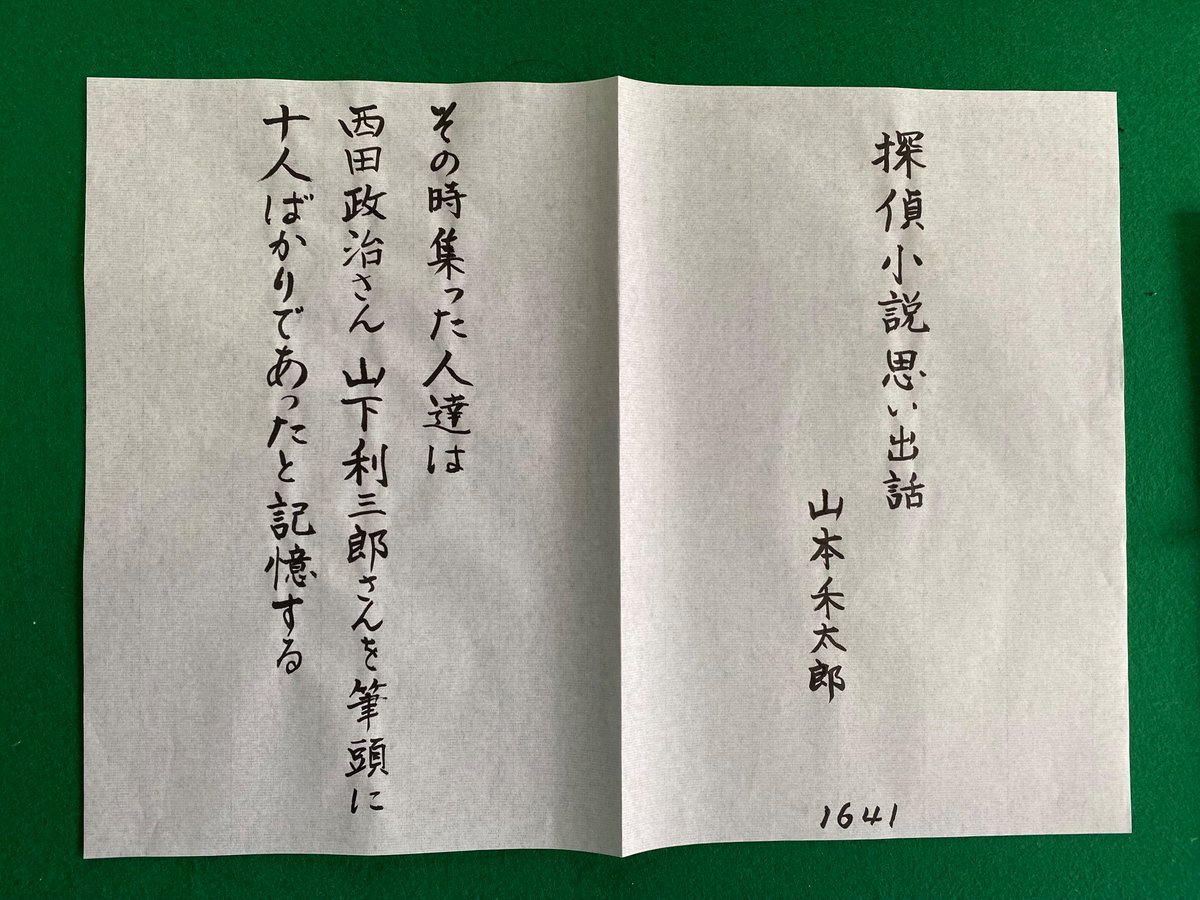 探偵小説思い出話
山本禾太郎
1641
その時集った人達は
西田政治さん 山下利三郎さんを筆頭に
十人ばかりであったと記憶する